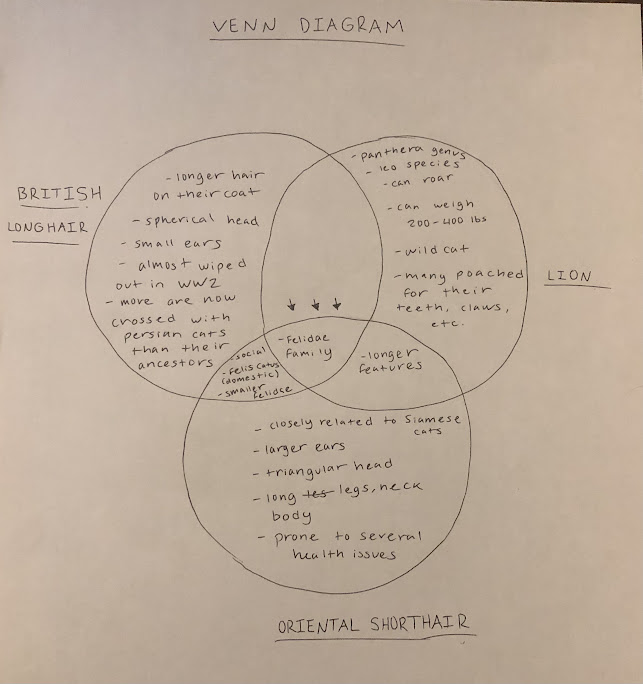 VENN DIAGRAM
BRITISH
LONGHAIR
- longer hair
on their coat
- spherical head
- small ears
- almost wiped
out in WW2
- more are now
crossed with
persian cats
than their
ancestors
- panthera genus
- leo species
- can roar
- can weigh
200-400 lbs
- wild cat
- many poached
for their
teeth, claws,
etc.
LION
- social
- felis catus
(domestic)
- smaller
felidae
- Felidae
family
- longer
features
- closely related to Siamese
cats
- larger ears
- triangular head
- long les legs, neck
body
- prone to several
health issues
ORIENTAL SHORTHAIR